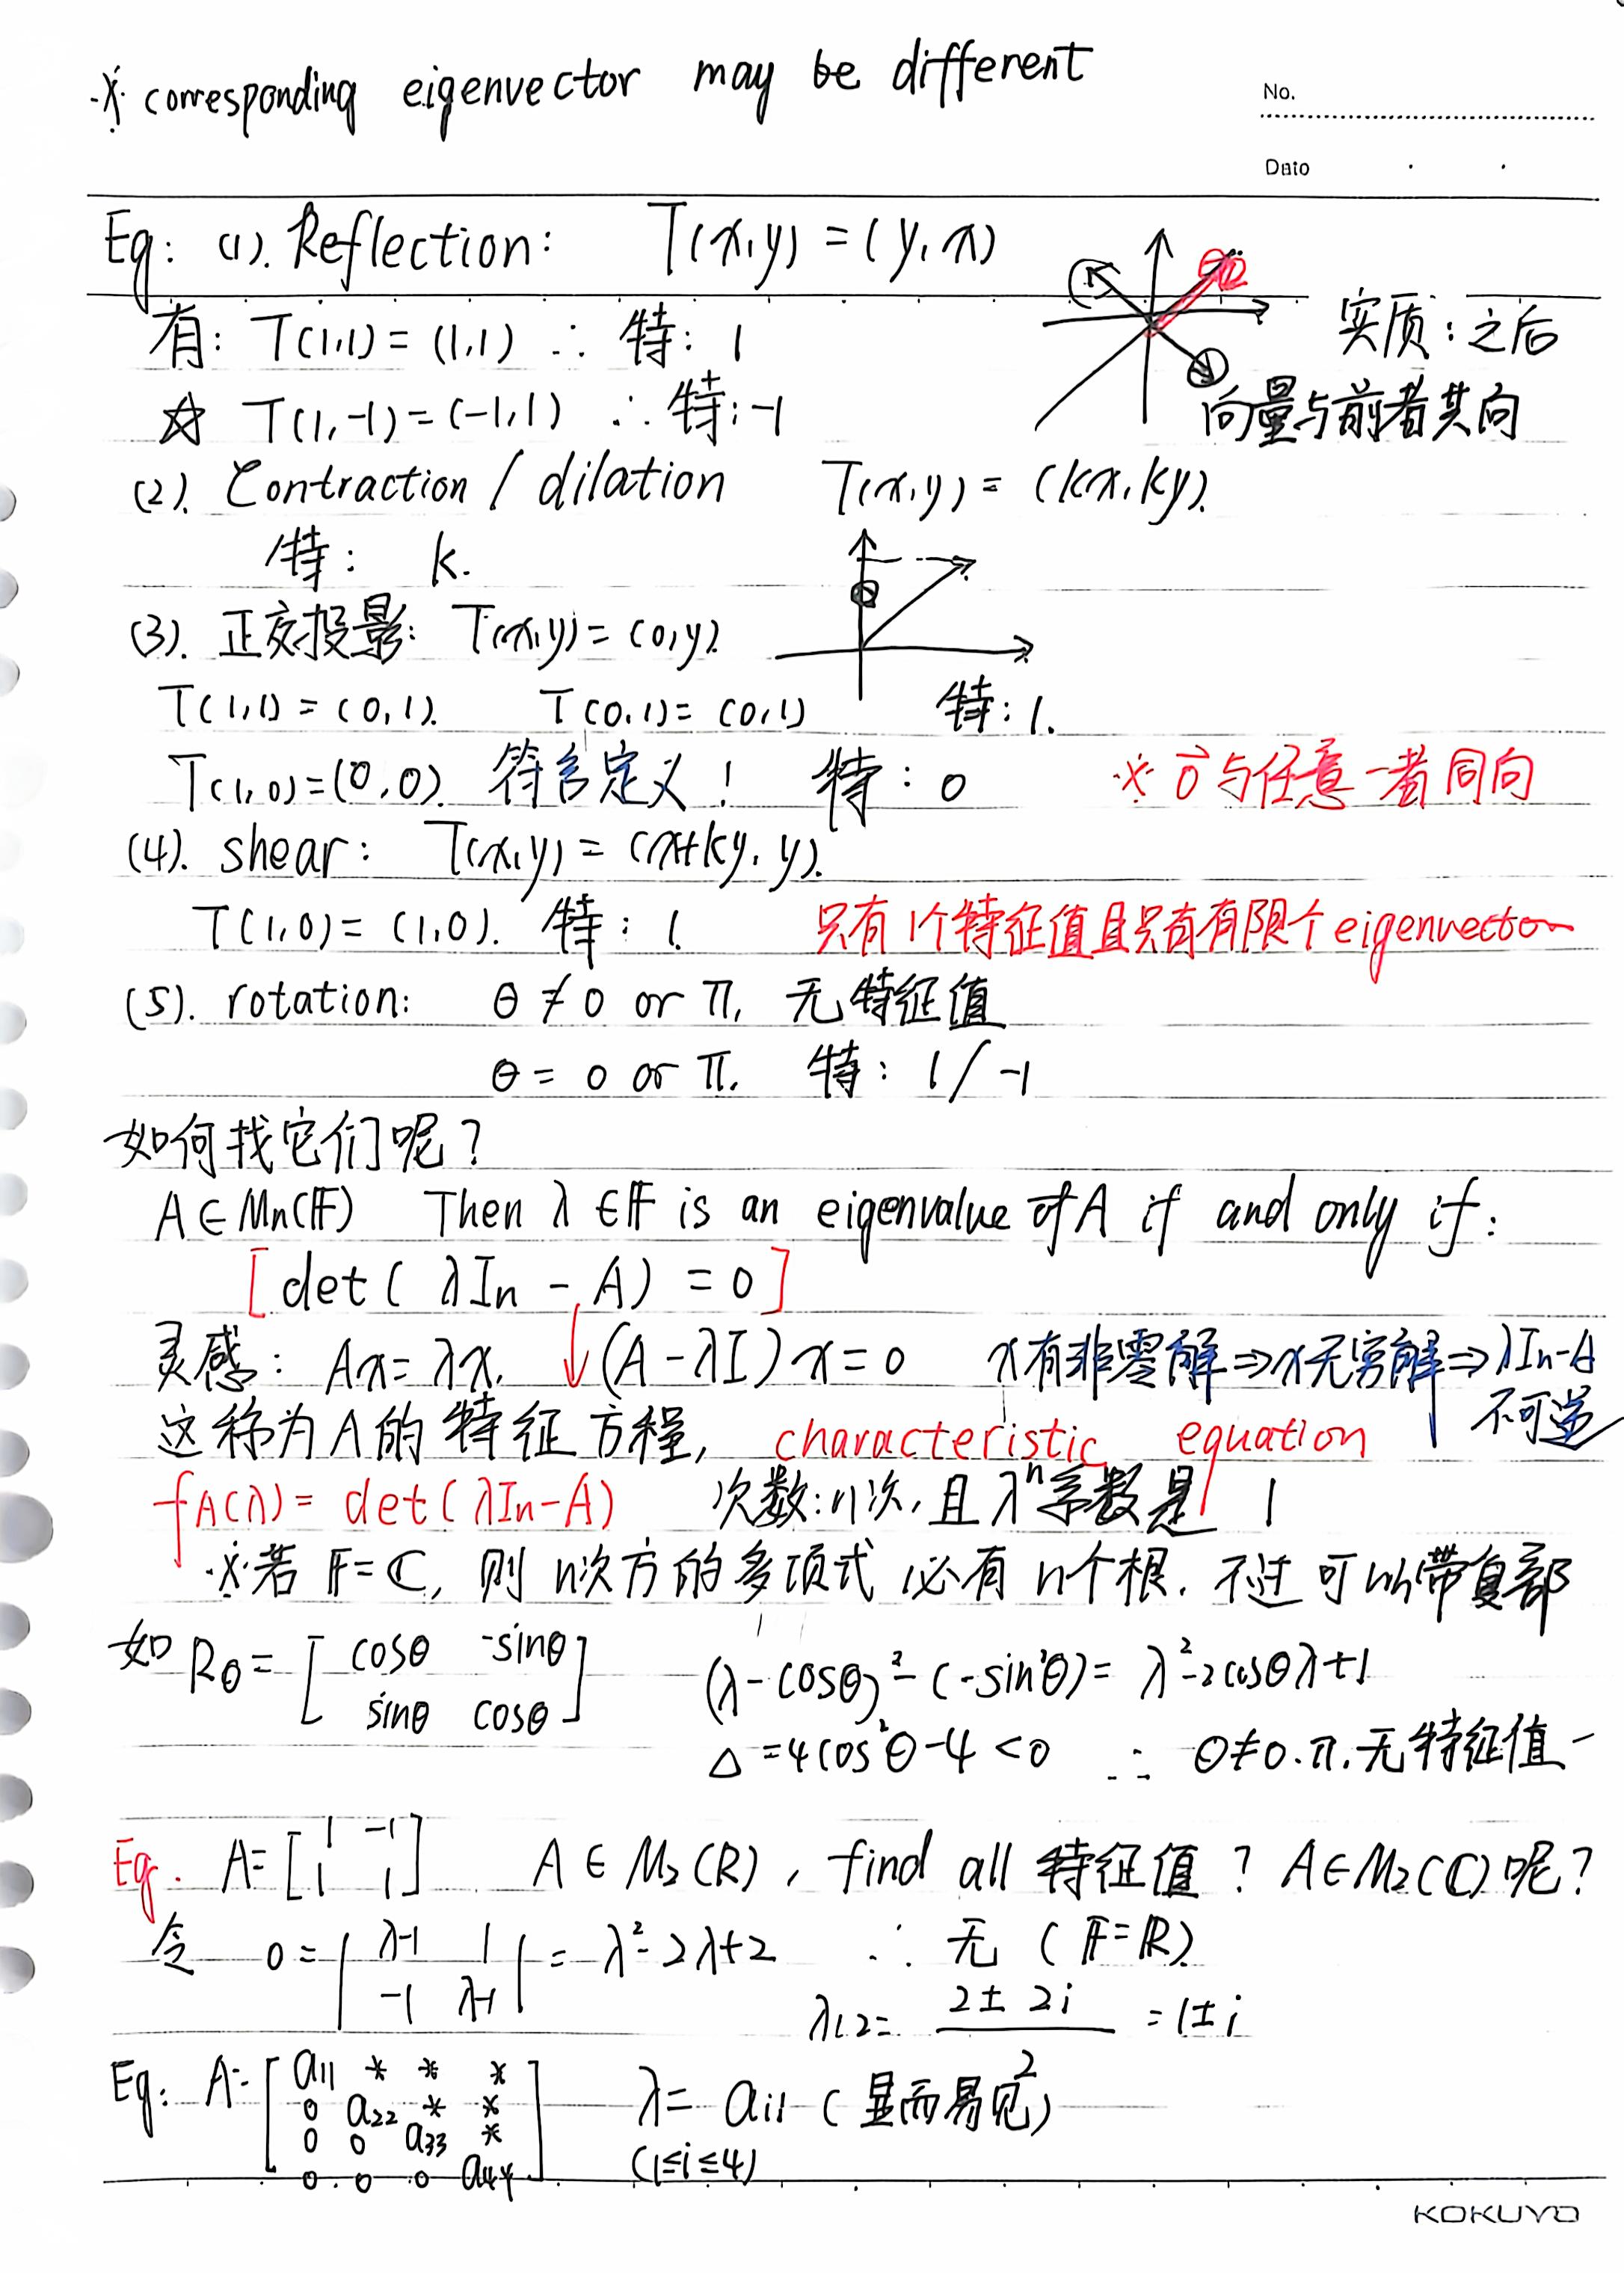 ※ corresponding eigenvector may be different
No.
Date
Eg: (1). Reflection: T(x,y) = (y,x)
有: T(1,1) = (1,1) ∴ 特: 1
实质:之后
☆ T(1,-1) = (-1,1) ∴ 特: -1
向量与前者共向
(2). Contraction / dilation T(x,y) = (kx,ky).
特: k.
(3). 正交投影: T(x,y) = (0,y).
T(1,1) = (0,1). T(0,1) = (0,1) 特: 1.
T(1,0) = (0,0). 符合定义! 特: 0 ※ 0⃗与任意一者同向
(4). shear: T(x,y) = (x+ky, y).
T(1,0) = (1,0). 特: 1. 只有1个特征值且只有有限个eigenvector
(5). rotation: θ ≠ 0 or π, 无特征值
θ = 0 or π, 特: 1 / -1
如何找它们呢?
A∈Mn(F) Then λ∈F is an eigenvalue of A if and only if:
[det( λIn - A) = 0]
灵感: Ax = λx. ↓ (A - λI) x = 0 x有非零解⇒x无穷解⇒λIn-A
不可逆
这称为A的特征方程, characteristic equation
fA(λ) = det(λIn-A) 次数:n次,且λⁿ系数是 1
※若 F=C, 则 n次方的多项式必有n个根. 不过可以带复部
如 Rθ = [ cosθ -sinθ
sinθ cosθ ]
(λ-cosθ)² - (-sin²θ) = λ²-2cosθλ+1
Δ = 4cos²θ-4 < 0 ∴ θ≠0.π.无特征值
Eg. A = [ 1 -1
1 1 ]
A ∈ M₂(R), find all 特征值? A∈M₂(C)呢?
令 0 = | λ-1 1
-1 λ-1 | = λ²-2λ+2 ∴ 无 (F=R)
λ1,2 = 2± 2i / 2 = 1±i
Eg: A = [ a11 * * *
0 a22 * *
0 0 a33 *
0 0 0 a44 ]
λ = aii (显而易见)
(1≤i≤4)
KOKUYO